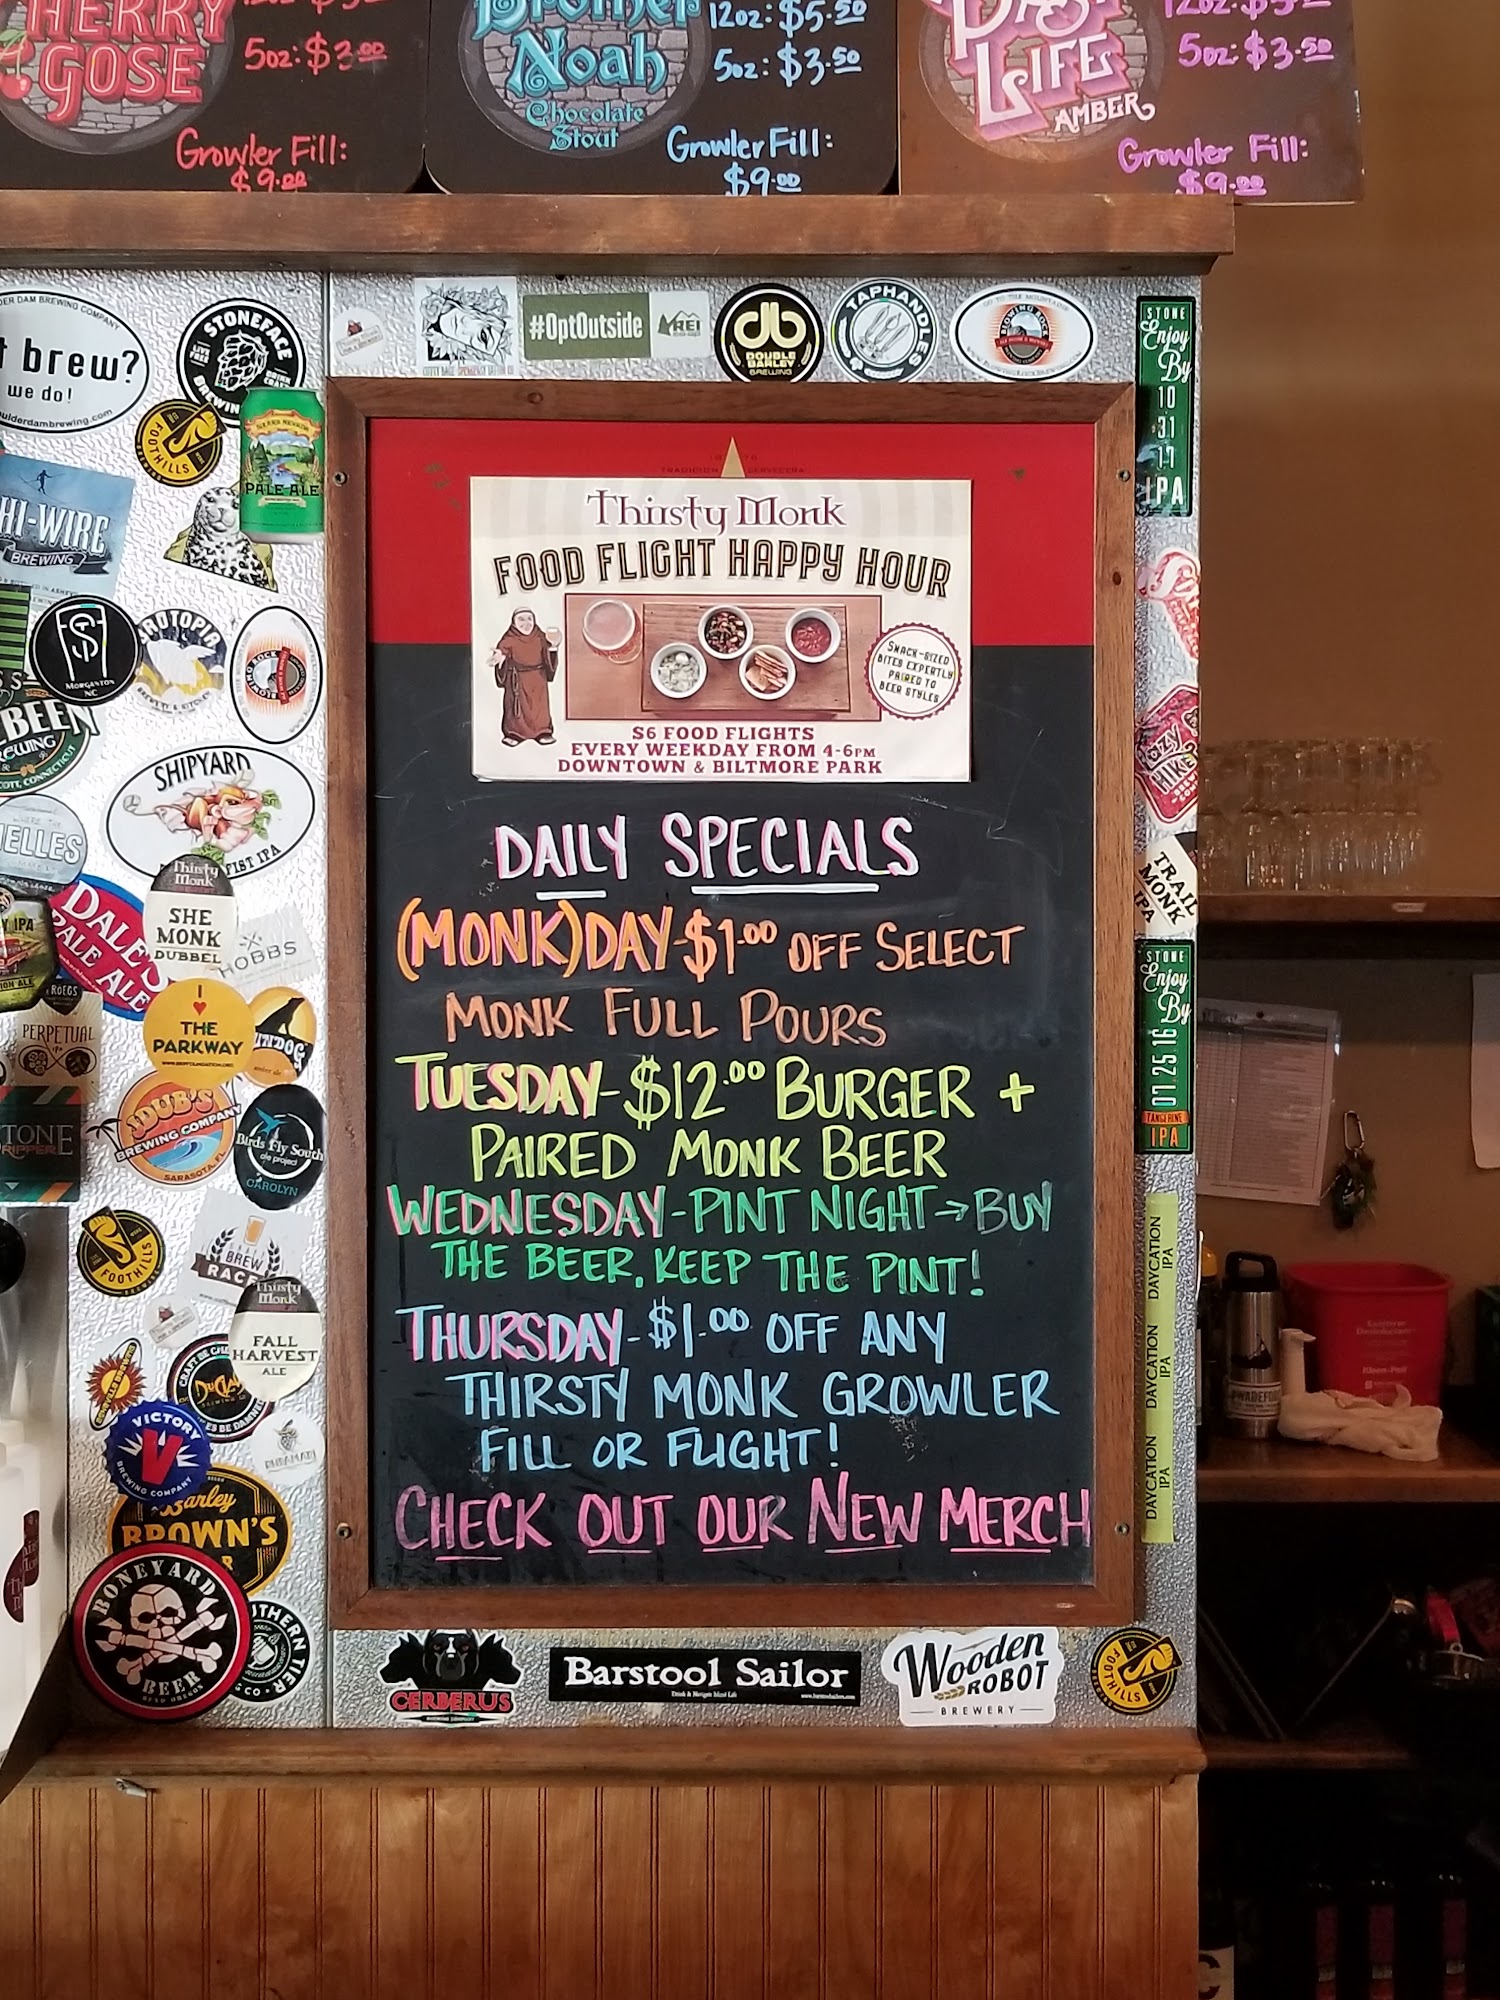 HERRY
GOSE
5oz: $3.00
Growler Fill:
$9.00
Brother
Noah
Chocolate
Stout
12oz: $5.50
5oz: $3.50
Growler Fill:
$9.00
PAST
LIFE
AMBER
5oz: $3.50
Growler Fill:
$9.00
DER DAM BREWING COMPANY
t brew?
we do!
ulderdambrewing.com
STONEFACE
BREWIN
FOOTHILLS
PALE ALE
HI-WIRE
BREWING
#OptOutside
REI
DOUBLE
BARLEY
BREWING
TAPHANDLES
GO TO THE MOUNTAINS
BLOWING ROCK
STONE
Enjoy
By
10
31
17
IPA
Thirsty Monk
FOOD FLIGHT HAPPY HOUR
SNACK-SIZED
BITES EXPERTLY
PAIRED TO
BEER STYLES
$6 FOOD FLIGHTS
EVERY WEEKDAY FROM 4-6PM
DOWNTOWN & BILTMORE PARK
DAILY SPECIALS
(MONK)DAY-$1.00 OFF SELECT
MONK FULL POURS
TUESDAY-$12.00 BURGER +
PAIRED MONK BEER
WEDNESDAY-PINT NIGHT→BUY
THE BEER, KEEP THE PINT!
THURSDAY-$1.00 OFF ANY
THIRSTY MONK GROWLER
FILL OR FLIGHT!
CHECK OUT OUR NEW MERCH
MORGANTON
NC
ROTOPIA
BREWERY & KITCHEN
BLOWING ROCK
BEEN
EWING
OTT, CONNECTICUT
SHIPYARD
FIST IPA
ELLES
Y IPA
DALE'S
PALE ALE
Thirsty
Monk
SHE
MONK
DUBBEL
HOBBS
TRÖEGS
PERPETUAL
IPA
I
♥
THE
PARKWAY
UNDOG
amber ale
JDUB'S
BREWING COMPANY
SARASOTA, FL
TONE
RIPPER
Birds Fly South
ale project
CAROLYN
FOOTHILLS
BREW
RACE
Thirsty
Monk
FALL
HARVEST
ALE
VICTORY
V
BREWING COMPANY
Barley
BROWN'S
BONEYARD
BEER
BEND OREGON
THERN TIER
CERBERUS
Barstool Sailor
Wooden
ROBOT
BREWERY
FOOTHILLS
TRAIL
MONK
IPA
STONE
Enjoy
By
07.25.16
TANGERINE
IPA
DAYCATION
IPA
DAYCATION
IPA
DAYCATION
IPA